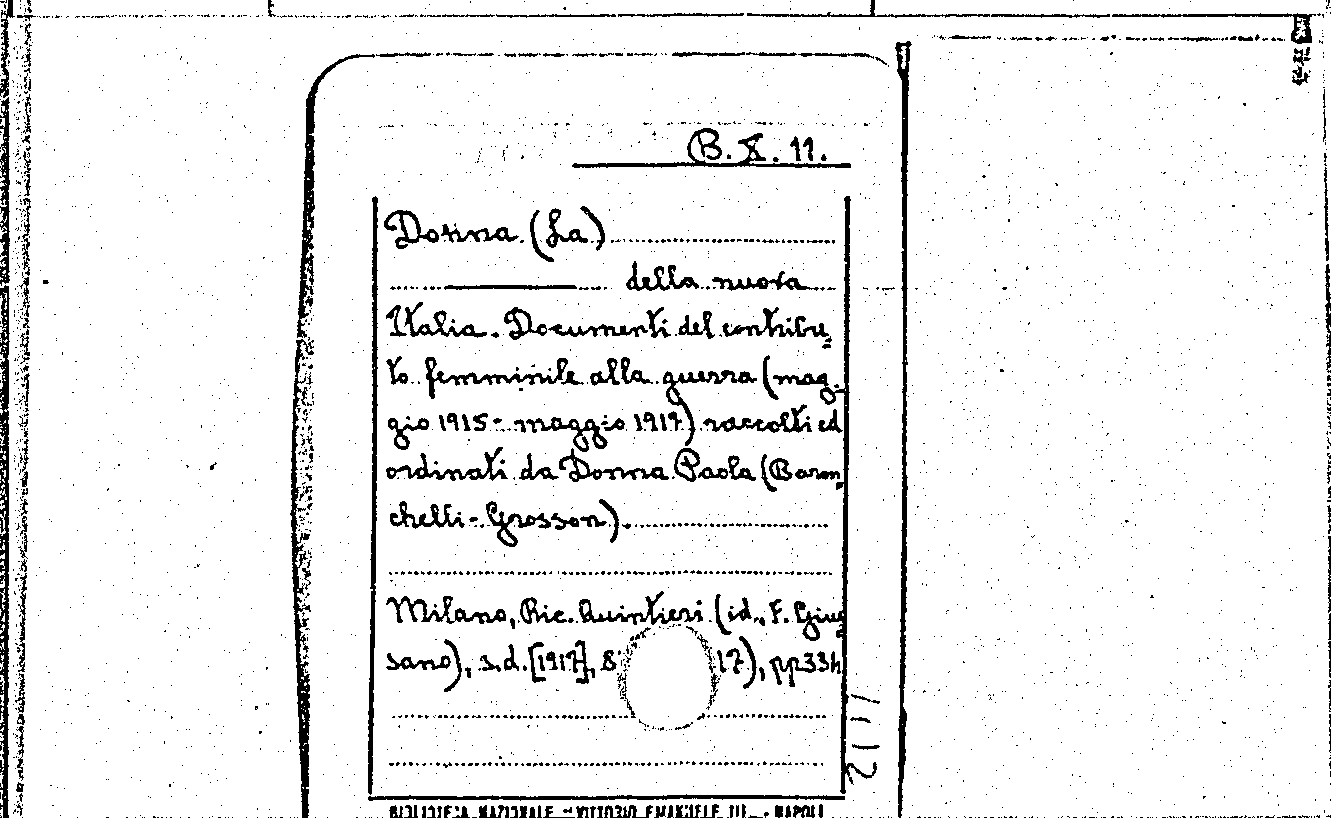 B. X. 11.
Donna (La)
della nuova
Italia. Documenti del contribu=
to femminile alla guerra (mag=
gio 1915 - maggio 1917) raccolti ed
ordinati da Donna Paola (Baron=
chelli-Grosson).
Milano, Ric. Quintieri (id., F. Giu=
sano), s.d. [1917], 8° 17), pp 334
BIBLIOTECA NAZIONALE - VITTORIO EMANUELE III - NAPOLI